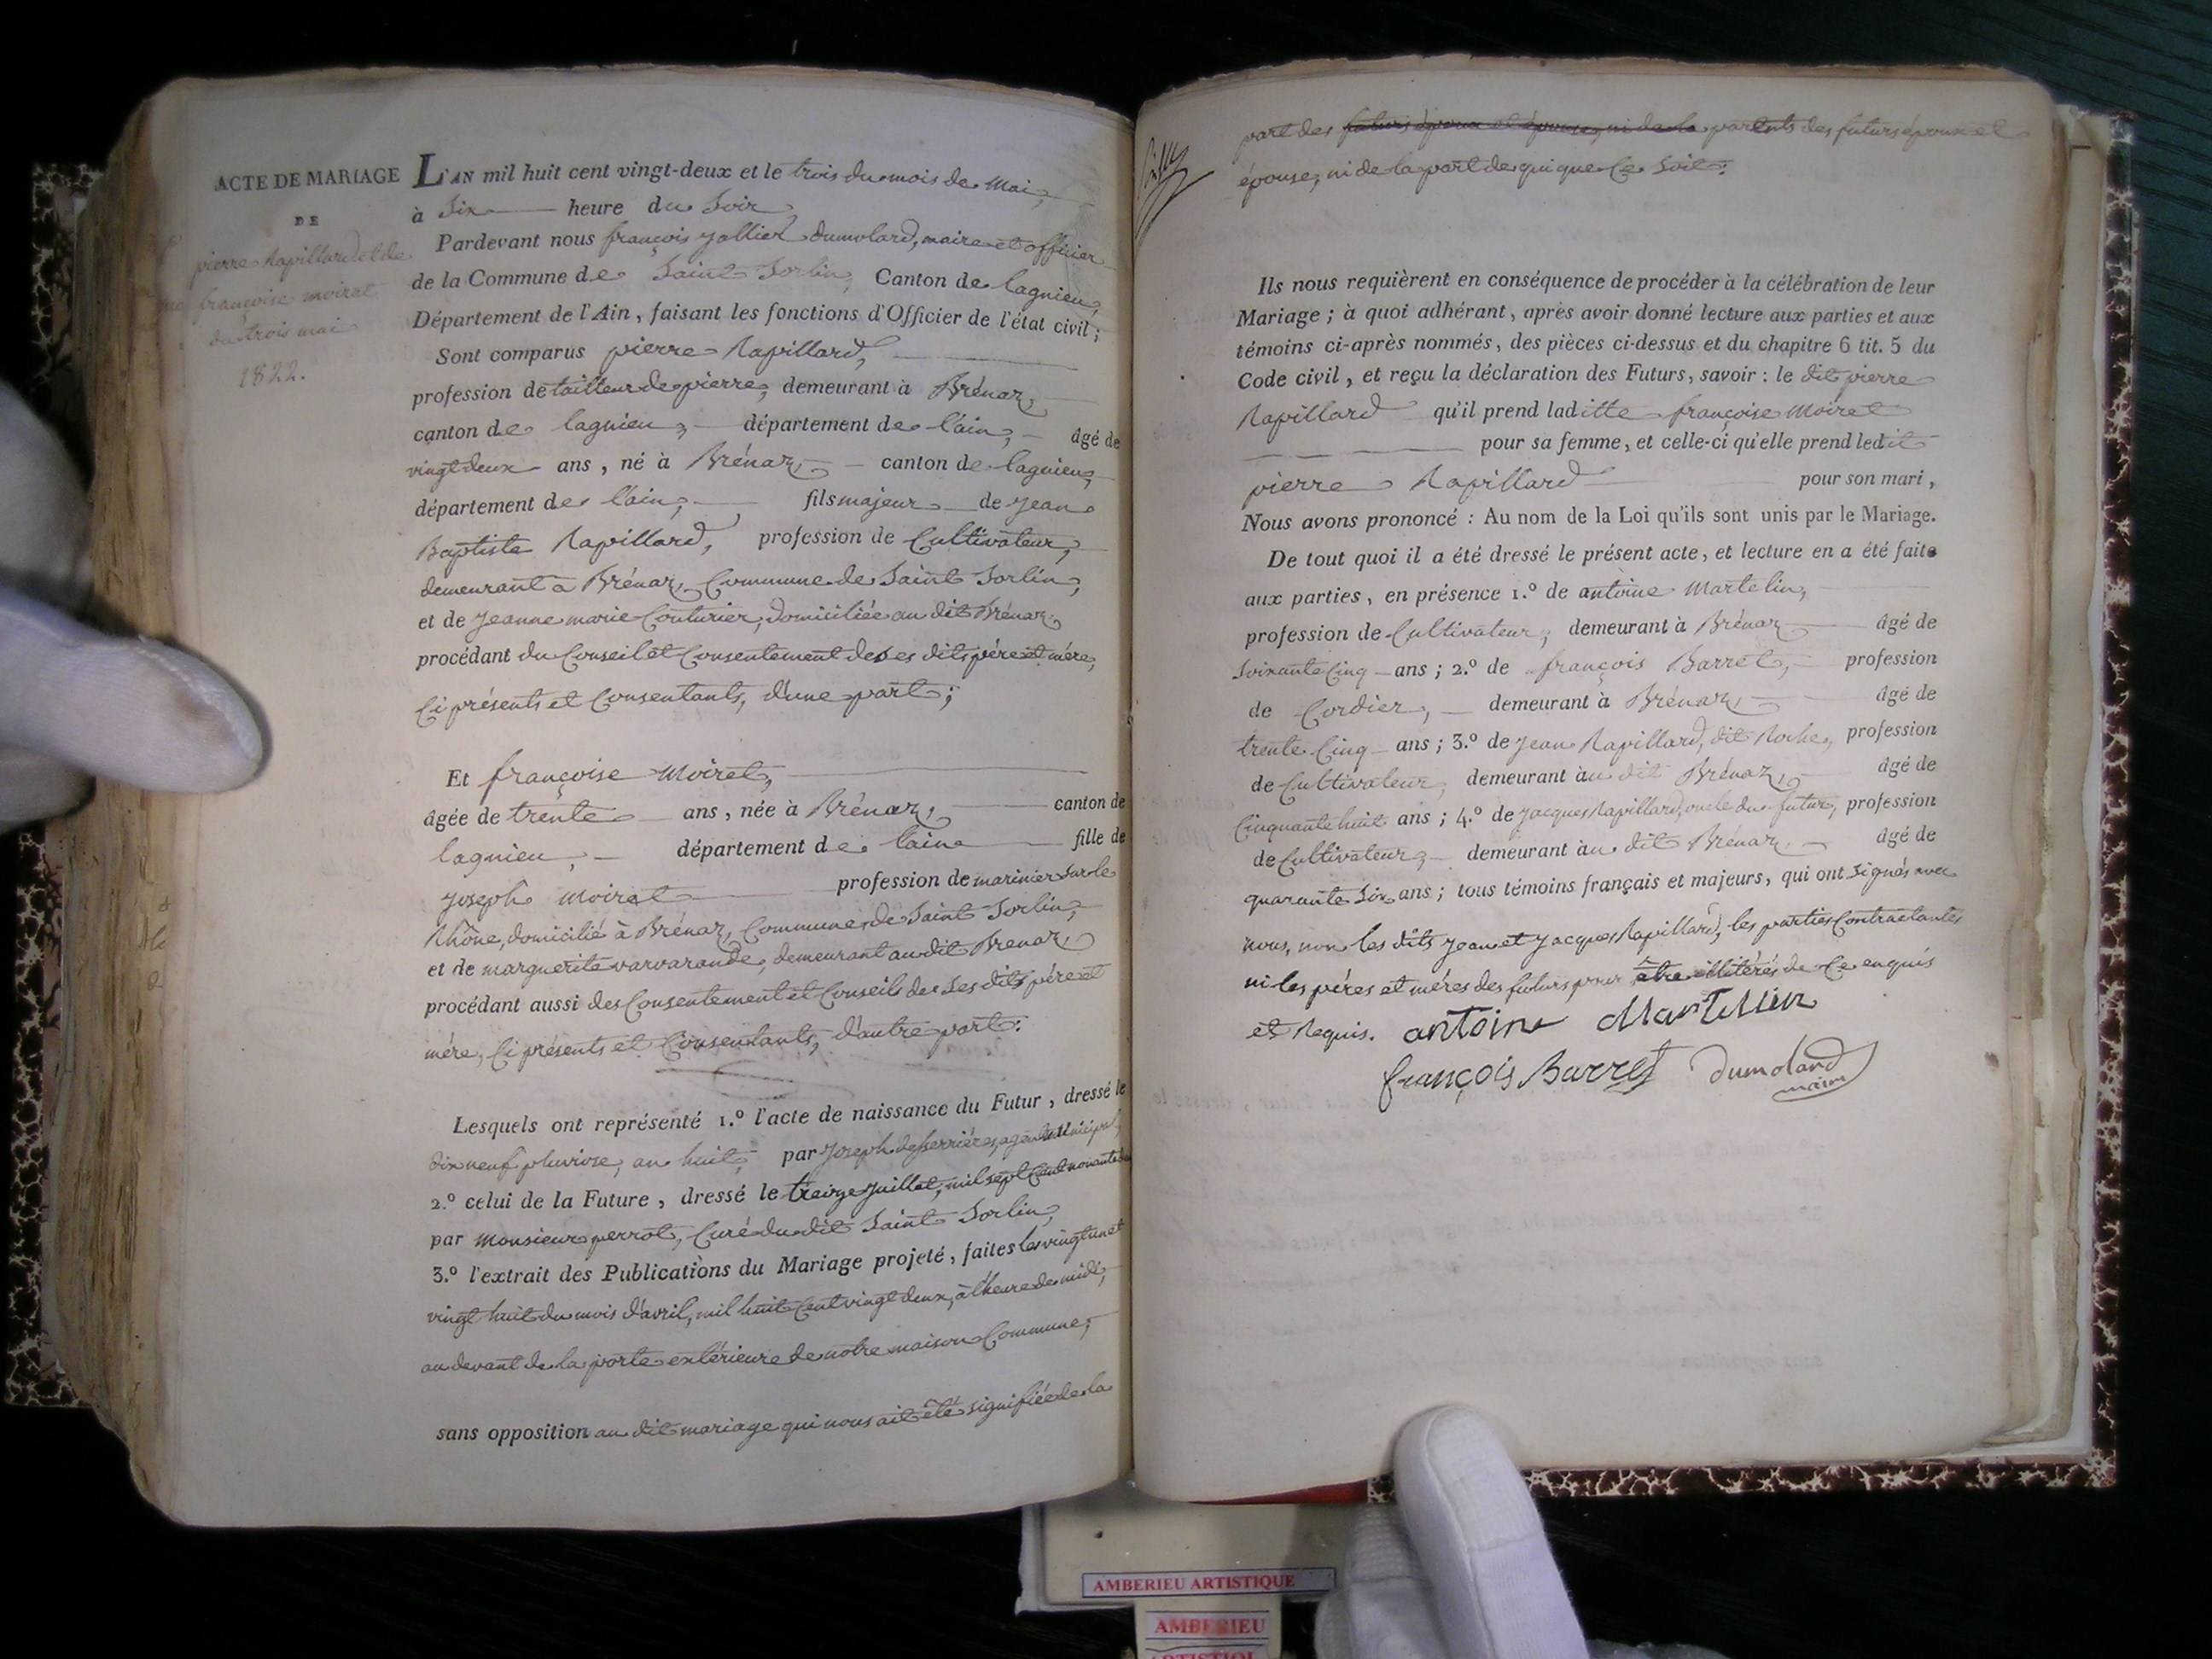 ACTE DE MARIAGE
DE
pierre Rapillard et de
françoise moiret
du trois mai
1822.
L'AN mil huit cent vingt-deux et le trois du mois de Mai,
à Six heure du Soir,
Pardevant nous françois dumolard, maire et officier
de la Commune de Saint Sorlin, Canton de lagnieu,
Département de l'Ain, faisant les fonctions d'Officier de l'état civil;
Sont comparus pierre Rapillard,
profession de tailleur de pierre, demeurant à Brénaz,
canton de lagnieu, département de l'ain, âgé de
vingt deux ans, né à Brénaz, canton de lagnieu,
département de l'ain, fils majeur de jean
Baptiste Rapillard, profession de Cultivateur,
demeurant à Brénaz, Commune de Saint Sorlin,
et de jeanne marie Couturier, domiciliée au dit Brénaz,
procédant du Conseil et Consentement de ses dits père et mère,
Ci présents et Consentants, d'une part;
Et françoise Moiret,
âgée de trente ans, née à Brénaz, canton de
lagnieu, département de l'ain fille de
joseph Moiret profession de marinier sur le
Rhône, domicilié à Brénaz, Commune de Saint Sorlin,
et de marguerite varvarande, demeurant au dit Brenaz,
procédant aussi des Consentement et Conseil de Ses dits père et
mère, Ci présents et Consentants, d'autre part:
Lesquels ont représenté 1.º l'acte de naissance du Futur, dressé le
dix neuf pluviose, an huit, par joseph deserrières, agent municipal,
2.º celui de la Future, dressé le treize juillet, mil sept Cent nonante
par Monsieur perrot, Curé du dit Saint Sorlin,
3.º l'extrait des Publications du Mariage projeté, faites les vingt un et
vingt huit du mois d'avril, mil huit Cent vingt deux, à l'heure de midi,
au devant de la porte extérieure de notre maison Commune,
sans opposition au dit mariage qui nous ait été signifiée de la
part des futurs époux et épouse, ni de la parents des futurs époux et
épouse, ni de la part de qui que Ce soit:
Ils nous requièrent en conséquence de procéder à la célébration de leur
Mariage; à quoi adhérant, après avoir donné lecture aux parties et aux
témoins ci-après nommés, des pièces ci-dessus et du chapitre 6 tit. 5 du
Code civil, et reçu la déclaration des Futurs, savoir: le dit pierre
Rapillard qu'il prend laditte françoise Moiret
pour sa femme, et celle-ci qu'elle prend ledit
pierre Rapillard pour son mari,
Nous avons prononcé: Au nom de la Loi qu'ils sont unis par le Mariage.
De tout quoi il a été dressé le présent acte, et lecture en a été faite
aux parties, en présence 1.º de antoine Martelin,
profession de Cultivateur, demeurant à Brénaz âgé de
Soixante Cinq ans; 2.º de françois Barret, profession
de Cordier, demeurant à Brénaz, âgé de
trente Cinq ans; 3.º de jean Rapillard, dit Roche, profession
de Cultivateur, demeurant au dit Brénaz, âgé de
Cinquante huit ans; 4.º de jacques Rapillard, oncle du futur, profession
de Cultivateur, demeurant au dit Brénaz âgé de
quarante Six ans; tous témoins français et majeurs, qui ont signés avec
nous, non les dits jean et jacques Rapillard, les parties Contractantes
ni les pères et mères des futurs pour être illitérés de Ce enquis
et Requis. antoine Martellin
françois Barret dumolard
maire
AMBERIEU ARTISTIQUE
AMBERIEU
ARTISTIQUE